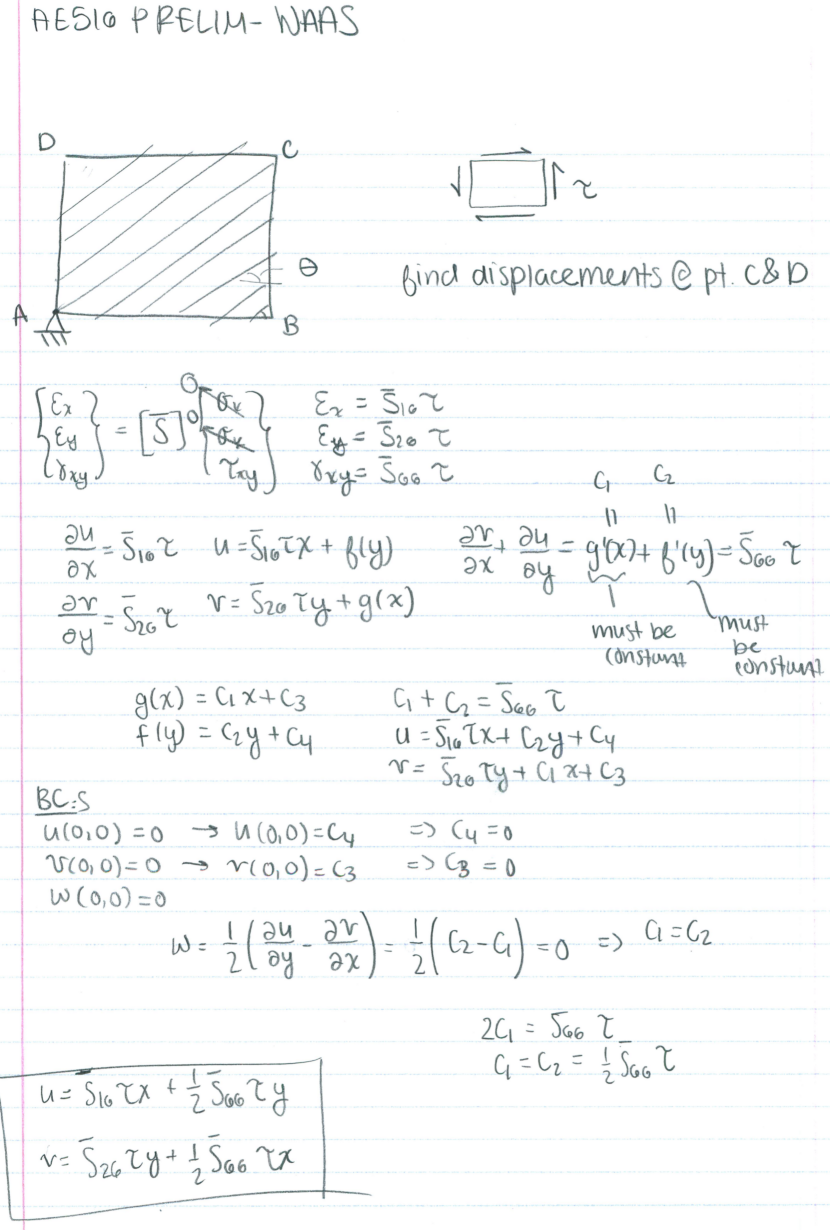 AE510 PRELIM - WAAS
D
C
τ
θ
find displacements @ pt. C&D
A
B
{εx εy γxy} = [S̄] {σx σx τxy} 0 0
εx = S̄16 τ
εy = S̄26 τ
γxy = S̄66 τ
C1 C2
|| ||
∂u/∂x = S̄16 τ u = S̄16 τx + f(y) ∂v/∂x + ∂u/∂y = g'(x) + f'(y) = S̄66 τ
∂v/∂y = S̄26 τ v = S̄26 τy + g(x)
must be constant
must be constant
g(x) = C1x + C3 C1 + C2 = S̄66 τ
f(y) = C2y + C4 u = S̄16 τx + C2y + C4
v = S̄26 τy + C1x + C3
BC:S
u(0,0) = 0 → u(0,0) = C4 => C4 = 0
v(0,0) = 0 → v(0,0) = C3 => C3 = 0
w(0,0) = 0
w = 1/2 (∂u/∂y - ∂v/∂x) = 1/2 (C2 - C1) = 0 => C1 = C2
2C1 = S̄66 τ
C1 = C2 = 1/2 S̄66 τ
u = S̄16 τx + 1/2 S̄66 τy
v = S̄26 τy + 1/2 S̄66 τx